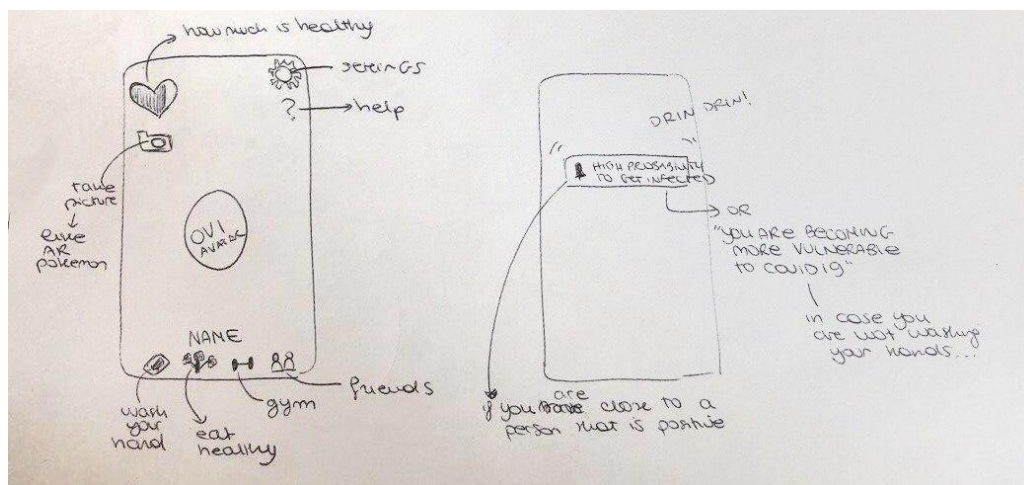 how much is healthy
settings
?
help
take
picture
like
AR
pokemon
OVI
AVATAR
NAME
wash
your
hand
eat
healthy
gym
friends
DRIN DRIN!
HIGH PROBABILITY
TO GET INFECTED
OR
"YOU ARE BECOMING
MORE VULNERABLE
TO COVID19"
in case you
are not washing
your hands...
are
if you close to a
person that is positive